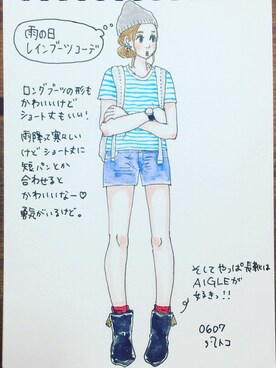 雨の日
レインブーツコーデ
ロングブーツの形も
かわいいけど
ショート丈もいい!
雨降って寒々しい
けどショート丈に
短パンとか
合わせると
かわいいなー♡
勇気がいるけど。
そしてやっぱ長靴は
AIGLEが
好きっ!!
0607